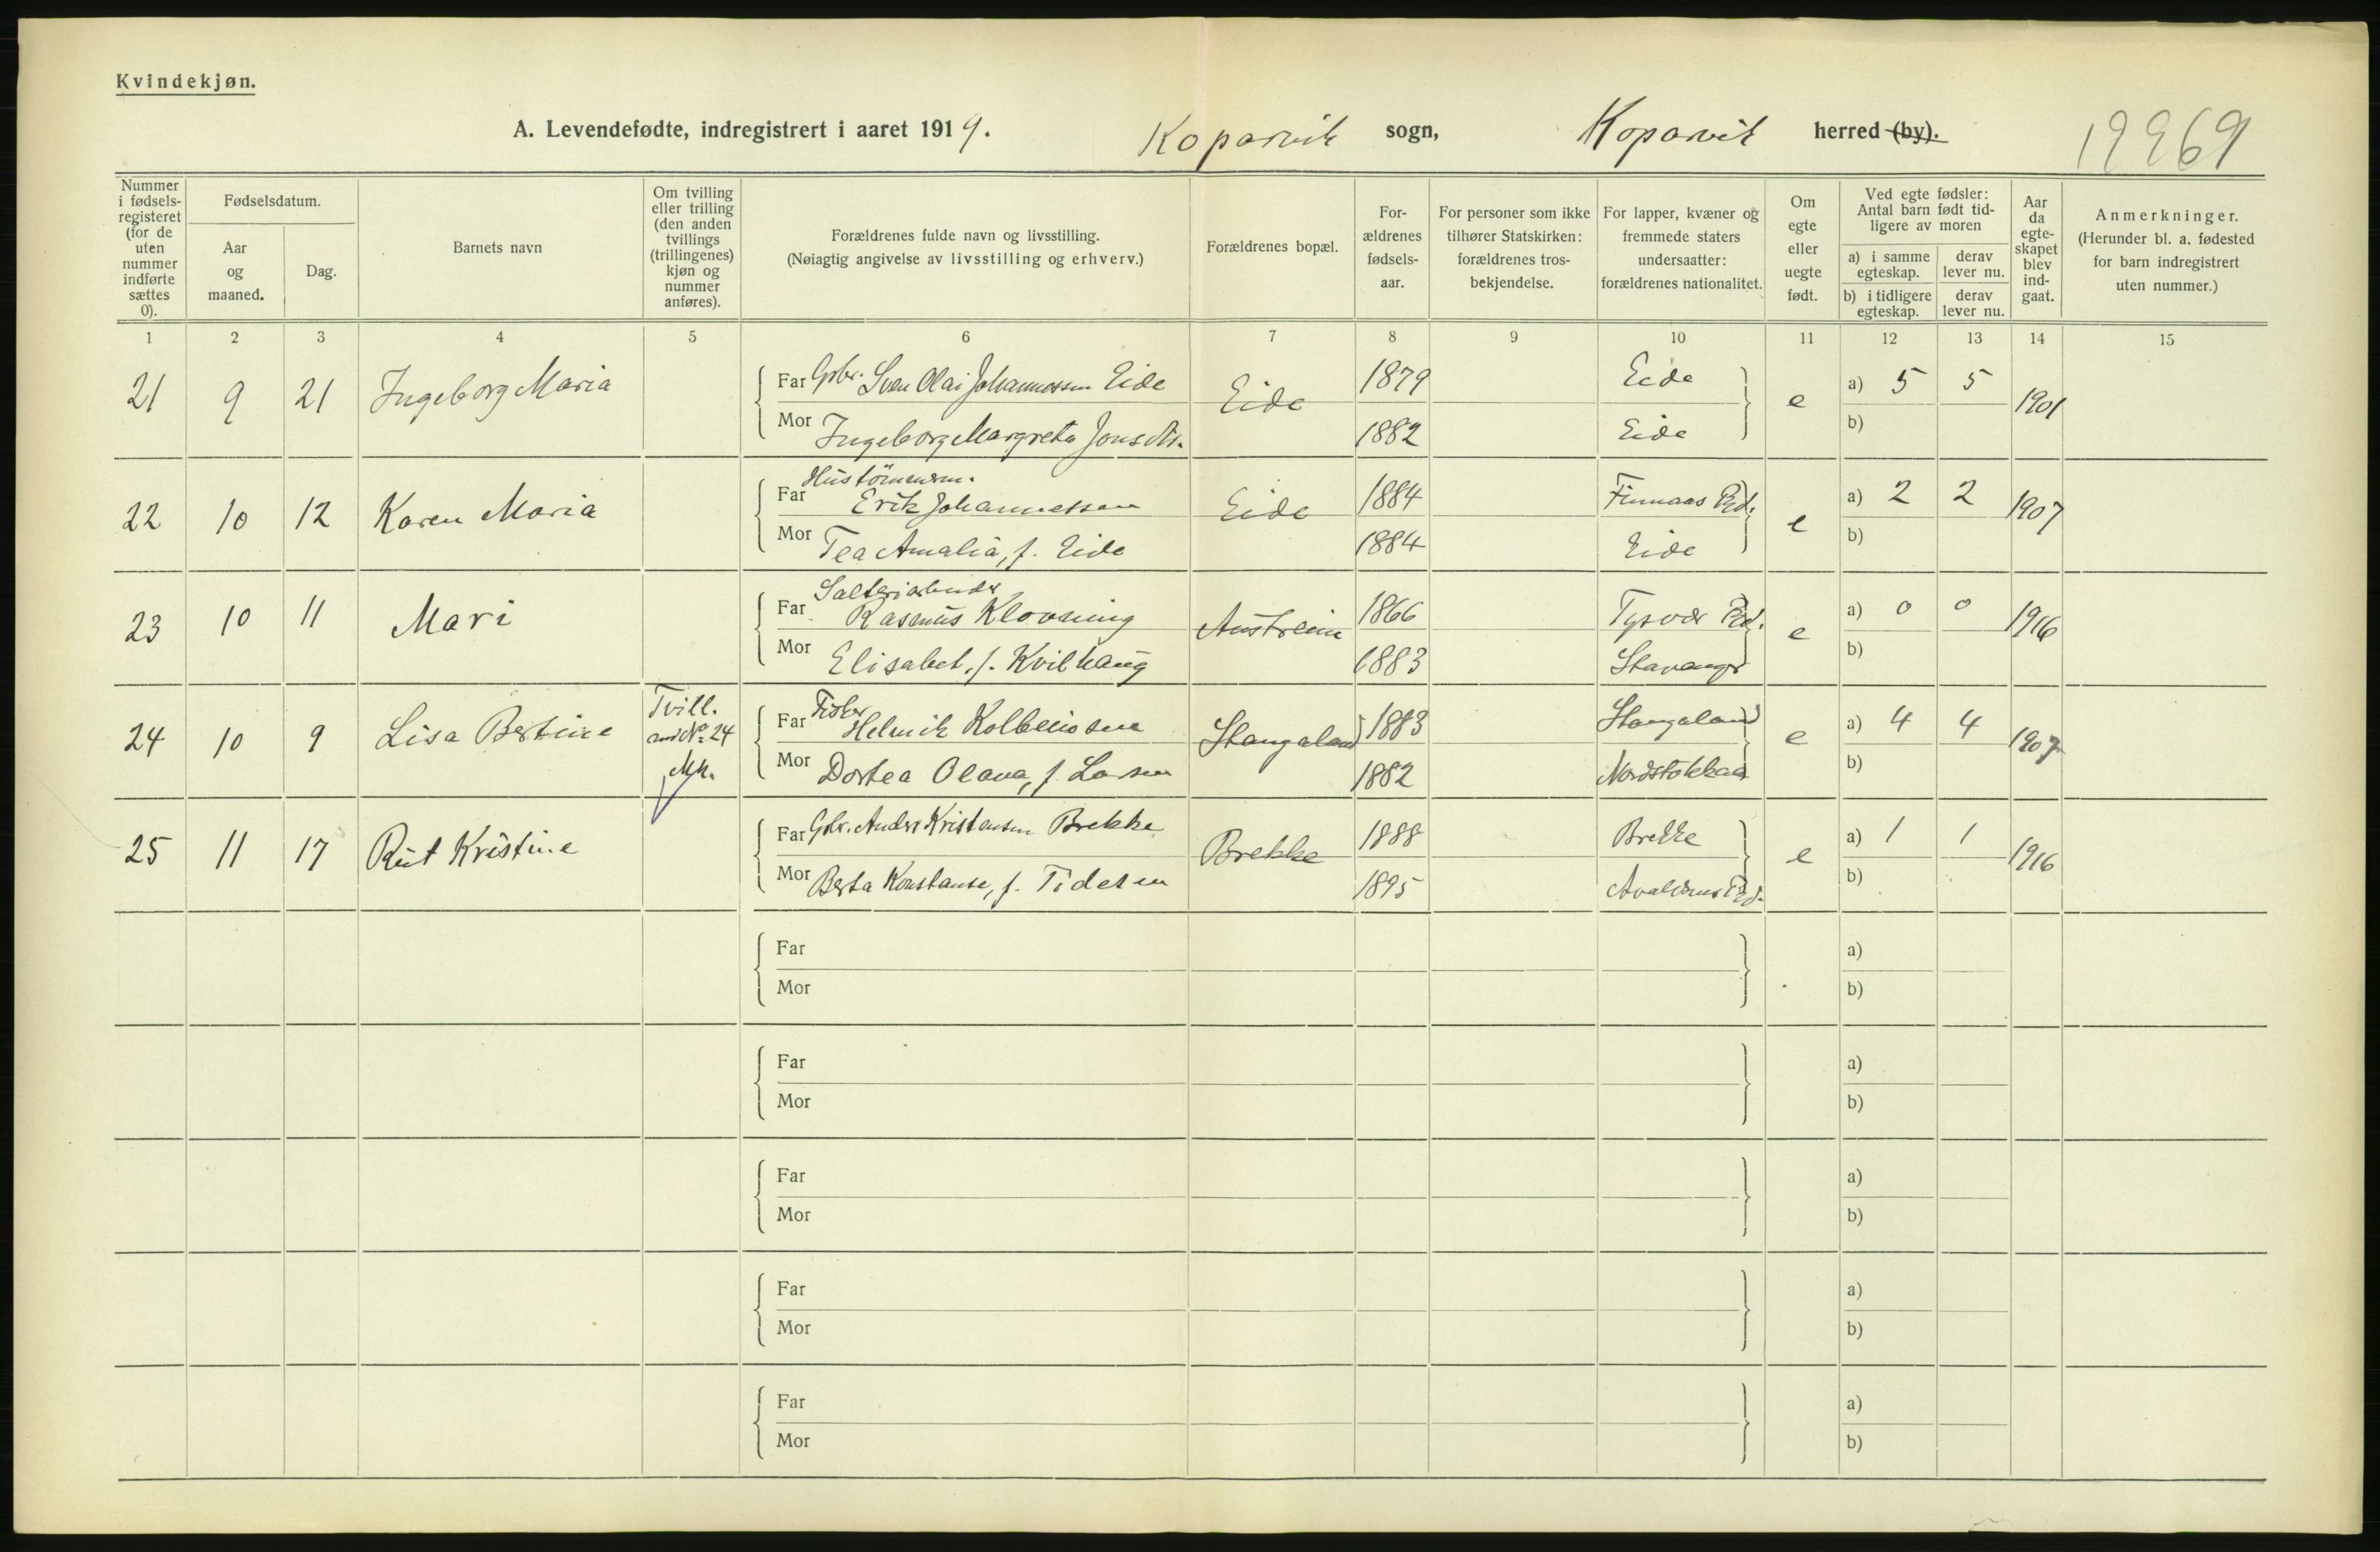 Kvindekjøn.
A. Levendefødte, indregistrert i aaret 1919. Kopervik sogn, Kopervik herred (by). 19969
Nummer i fødselsregisteret (for de uten nummer indførte sættes 0).
Fødselsdatum.
Aar og maaned.
Dag.
Barnets navn
Om tvilling eller trilling (den anden tvillings (trillingenes) kjøn og nummer anføres).
Forældrenes fulde navn og livsstilling.
(Nøiagtig angivelse av livsstilling og erhverv.)
Forældrenes bopæl.
Forældrenes fødselsaar.
For personer som ikke tilhører Statskirken: forældrenes trosbekjendelse.
For lapper, kvæner og fremmede staters undersaatter: forældrenes nationalitet.
Om egte eller uegte født.
Ved egte fødsler: Antal barn født tidligere av moren
a) i samme egteskap. derav lever nu.
b) i tidligere egteskap. derav lever nu.
Aar da egteskapet blev indgaat.
Anmerkninger.
(Herunder bl. a. fødested for barn indregistrert uten nummer.)
1 2 3 4 5 6 7 8 9 10 11 12 13 14 15
21 9 21 Ingeborg Maria Far Gbr. Sven Olai Johannessen Eide Eide 1879 Eide e a) 5 5 1901
Mor Ingeborg Margreta Jonsdtr. 1882 Eide b)
22 10 12 Karen Maria Far Hustömerm. Erik Johannessen Eide 1884 Finnaas Pd. e a) 2 2 1907
Mor Tea Amalia, f. Eide 1884 Eide b)
23 10 11 Mari Far Salteriarbeider Rasmus Klovning Austreim 1866 Tysvær Pd. e a) 0 0 1916
Mor Elisabet, f. Kvilhaug 1883 Stavanger b)
24 10 9 Lisa Bertine Tvill. m. № 24 Mk. Far Fisker Helmik Kolbeinsen Stangaland 1883 Stangaland e a) 4 4 1907
Mor Dortea Olava, f. Larsen 1882 Nordstokka b)
25 11 17 Rut Kristine Far Gbr. Anders Kristensen Brekke Brekke 1888 Brekke e a) 1 1 1916
Mor Berta Konstanse, f. Tidesen 1895 Avaldsnes Pd. b)
Far a)
Mor b)
Far a)
Mor b)
Far a)
Mor b)
Far a)
Mor b)
Far a)
Mor b)